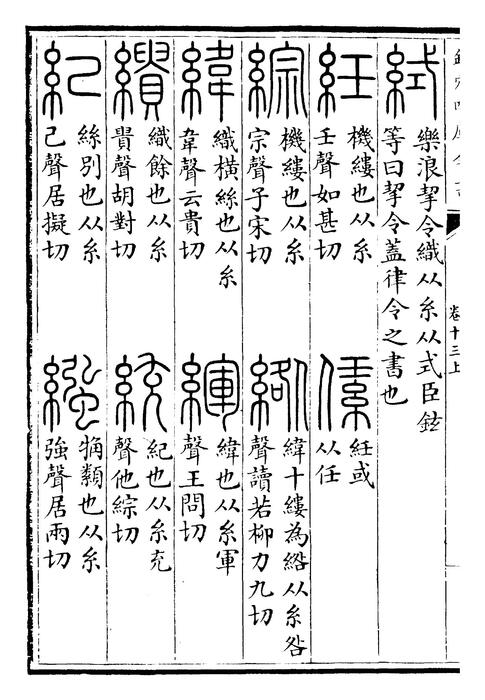 卷十三上
𦀗
樂浪挈令織从糸从式臣鉉
等曰挈令蓋律令之書也
紝
機縷也从糸
壬聲如甚切
䋕
紝或
从任
綜
機縷也从糸
宗聲子宋切
綹
緯十縷為綹从糸咎
聲讀若柳力九切
緯
織橫絲也从糸
韋聲云貴切
緷
緯也从糸軍
聲王問切
繢
織餘也从糸
貴聲胡對切
統
紀也从糸充
聲他綜切
紀
絲別也从糸
己聲居擬切
繈
觕纇也从糸
強聲居兩切